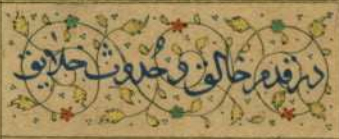 در قدم خالق و حدوث خلایق